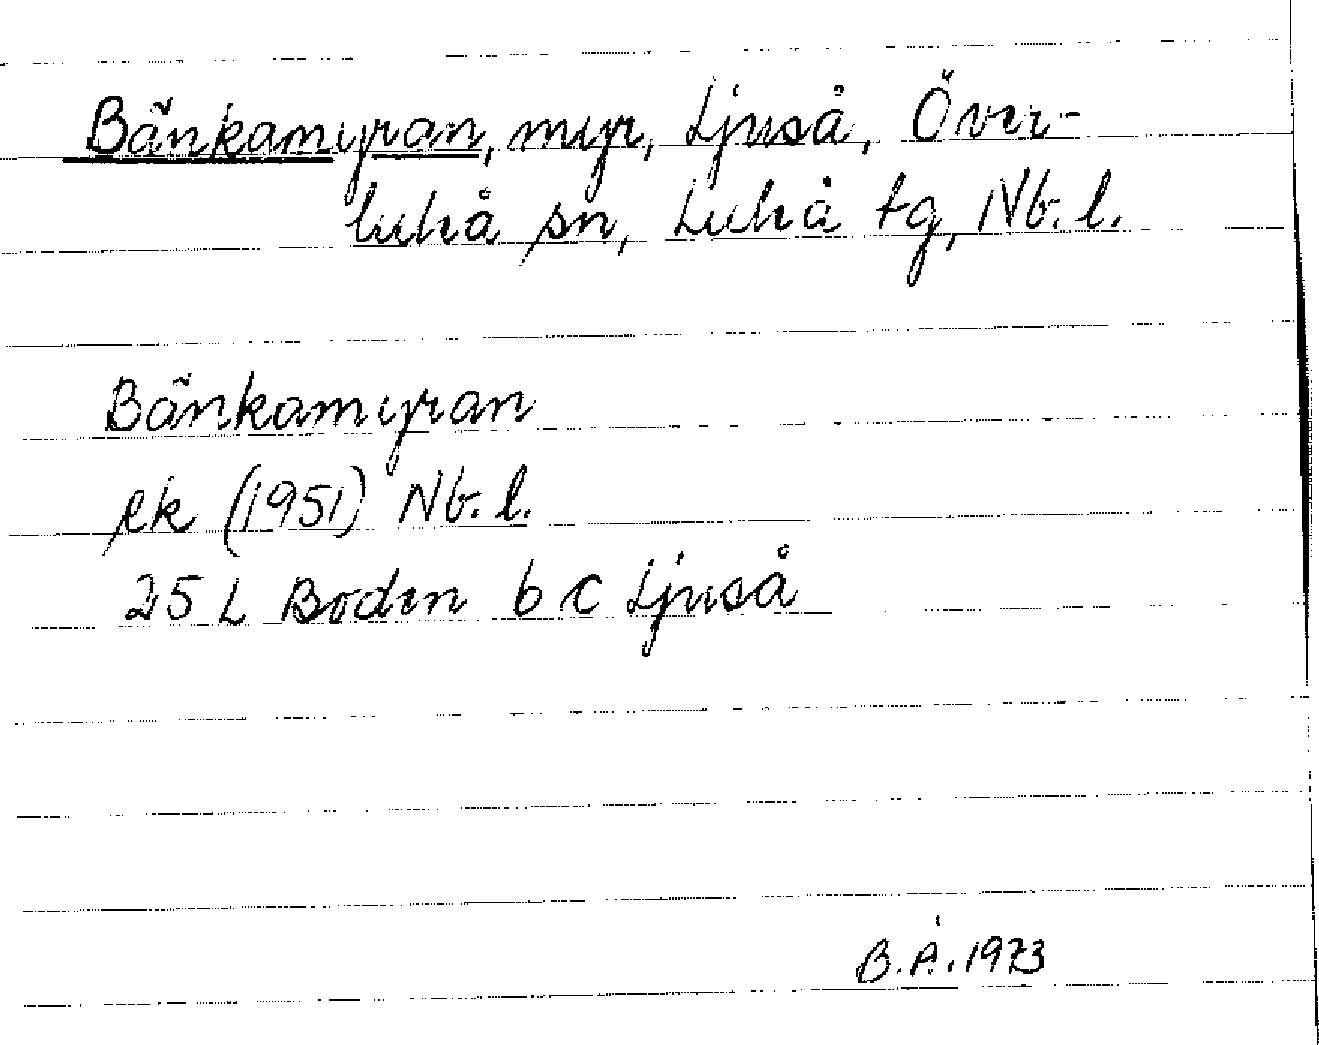 Bänkamyran, myr, Ljuså, Över-
luleå sn, Luleå tg, Nb. l.
Bänkamyran
ek (1951) Nb. l.
25 L Boden b c Ljuså
B. Å. 1973